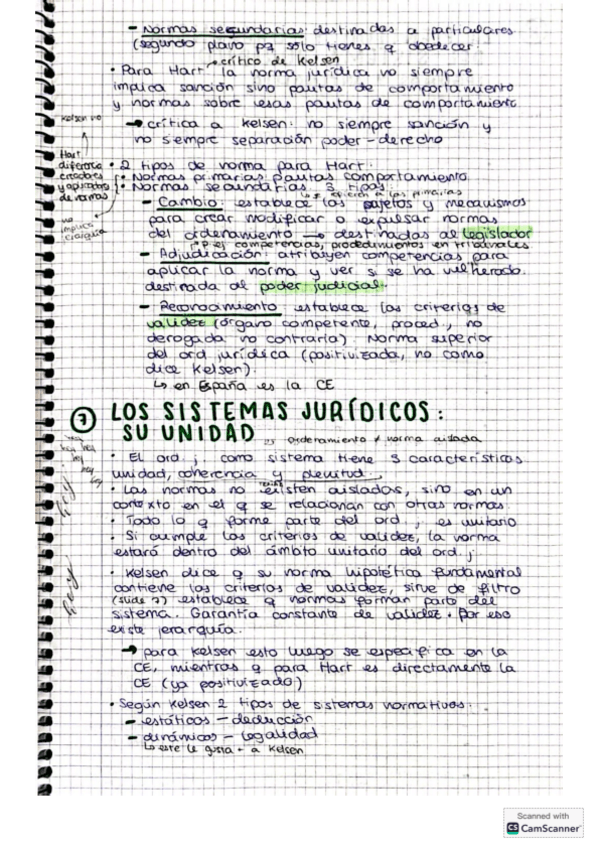 - Normas secundarias destinadas a particulares
(segundo plano pq solo tienes q obedecer.
crítico de Kelsen
· Para Hart la norma jurídica no siempre
implica sanción sino pautas de comportamiento
y normas sobre esas pautas de comportamiento
→ crítica a Kelsen: no siempre sanción y
no siempre separación poder-derecho
Kelsen no
Hart
diferencia
creadores
y aplicadores
de normas
no
implica
jerarquía
· 2 tipos de norma para Hart:
· Normas primarias pautas comportamiento
· Normas secundarias 3 tipos:
se refieren a las primarias
- Cambio: establece los sujetos y mecanismos
para crear modificar o expulsar normas
del ordenamiento → destinadas al legislador
p ej competencias, procedimientos en tribunales
- Adjudicación: atribuyen competencias para
aplicar la norma y ver si se ha vulnerado.
destinada al poder judicial.
- Reconocimiento establece los criterios de
validez (órgano competente, proced., no
derogada no contraria). Norma superior
del ord jurídico (positivizada, no como
dice Kelsen).
↳ en España es la CE
7 LOS SISTEMAS JURÍDICOS:
SU UNIDAD
ordenamiento ≠ norma aislada
· El ord j. como sistema tiene 3 características
unidad, coherencia y plenitud.
· Las normas no existen aisladas, sino en un
contexto en el q se relacionan con otras normas.
· Todo lo q forme parte del ord. j. es unitario
· Si cumple los criterios de validez, la norma
estará dentro del ámbito unitario del ord. j.
hey
hey
hey
hey
· Kelsen dice q su norma hipotética fundamental
contiene los criterios de validez, sirve de filtro
(slide 7) establece q normas forman parte del
sistema. Garantía constante de validez. Por eso
existe jerarquía.
→ para Kelsen esto luego se especifica en la
CE, mientras q para Hart es directamente la
CE (ya positivizado)
· Según Kelsen 2 tipos de sistemas normativos:
- estáticos - deducción
- dinámicos - legalidad
↳ este le gusta + a Kelsen
Scanned with
CS CamScanner